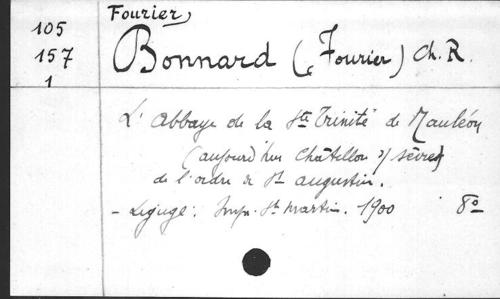 Fourier,
105
157
1
Bonnard (Fourier) Ch. R.
L'Abbaye de la Ste Trinité de Mauléon
(aujourd'hui Châtillon s/ Sèvre)
de l'ordre de St Augustin.
- Ligugé: Imp. St Martin. 1900 8o